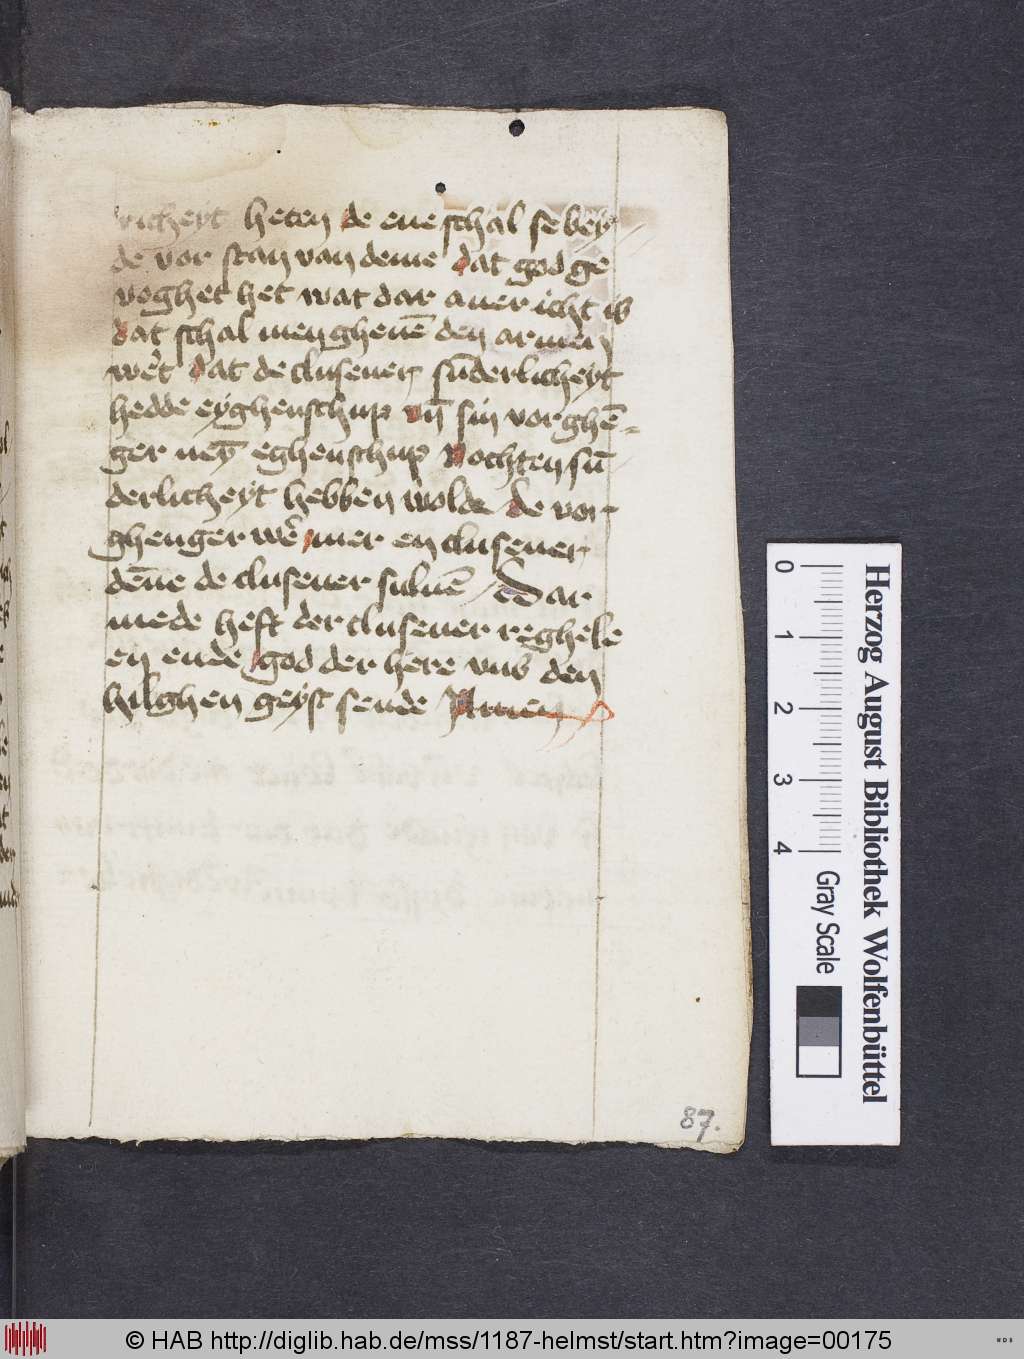 richeyt heten de ene schal se bey
de vor stan van deme dat god ge
voghet het wat dar auer icht is
dat schal men gheuē den armen
wēr dat de clusener sūderlicheyt
hedde eyghenschup vn̄ sin vorghē-
ger neȳ eghenschup nochten sū
derlicheyt hebben wolde de vor
ghenger wē mer en clusener
dēne de clusener suluē / Dar
mede heft der clusener reghele
en ende god der here vns den
hilghen geyst sende Amen
87.
Herzog August Bibliothek Wolfenbüttel
0 1 2 3 4
Gray Scale
© HAB http://diglib.hab.de/mss/1187-helmst/start.htm?image=00175